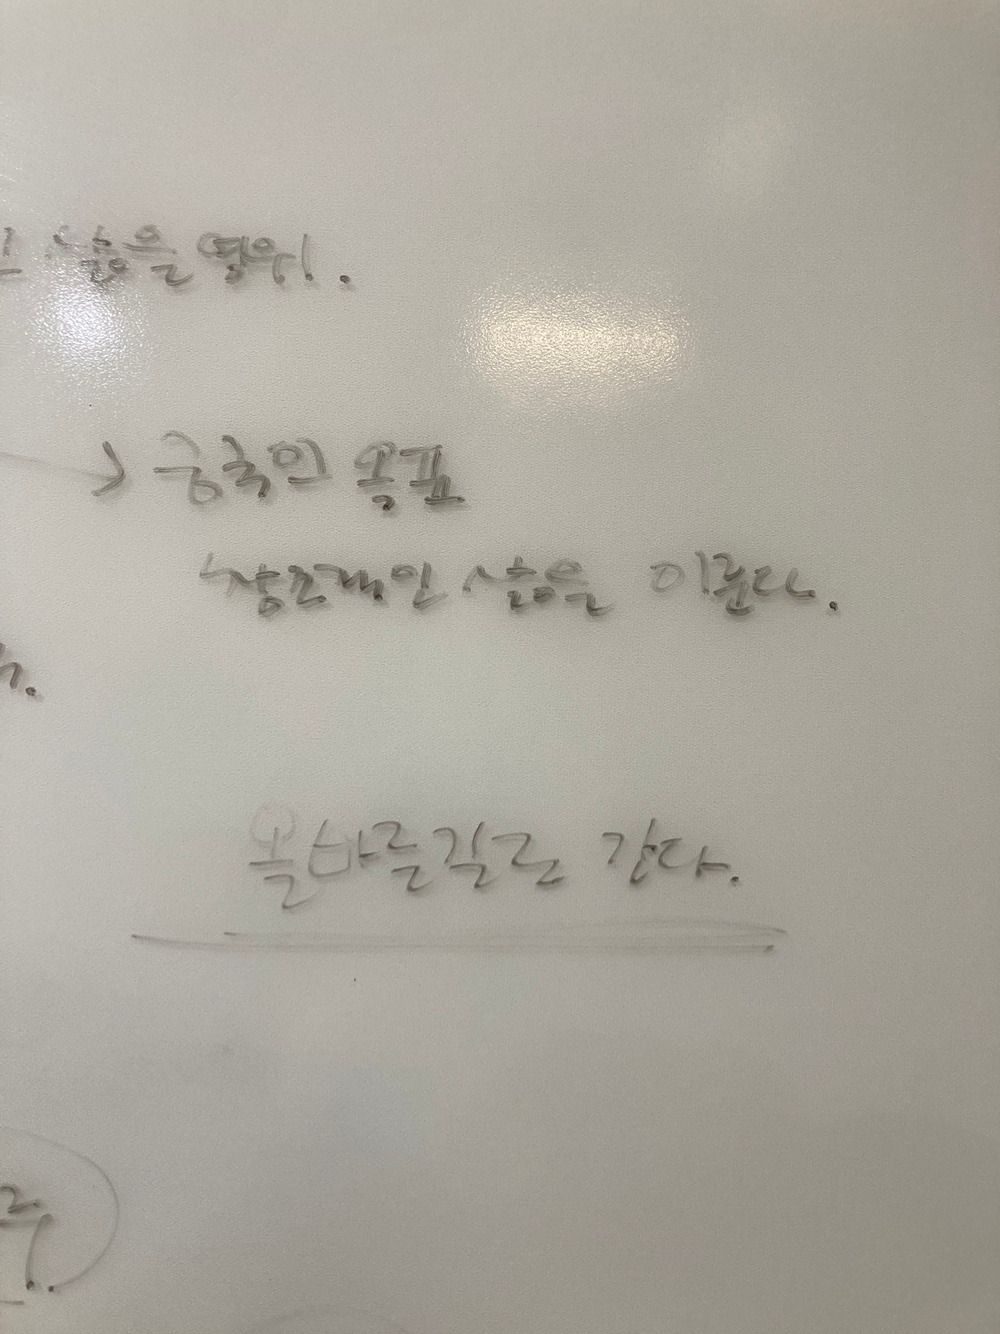 삶을 영위.
> 궁극의 목표
창조적인 삶을 이룬다.
올바른길로 간다.